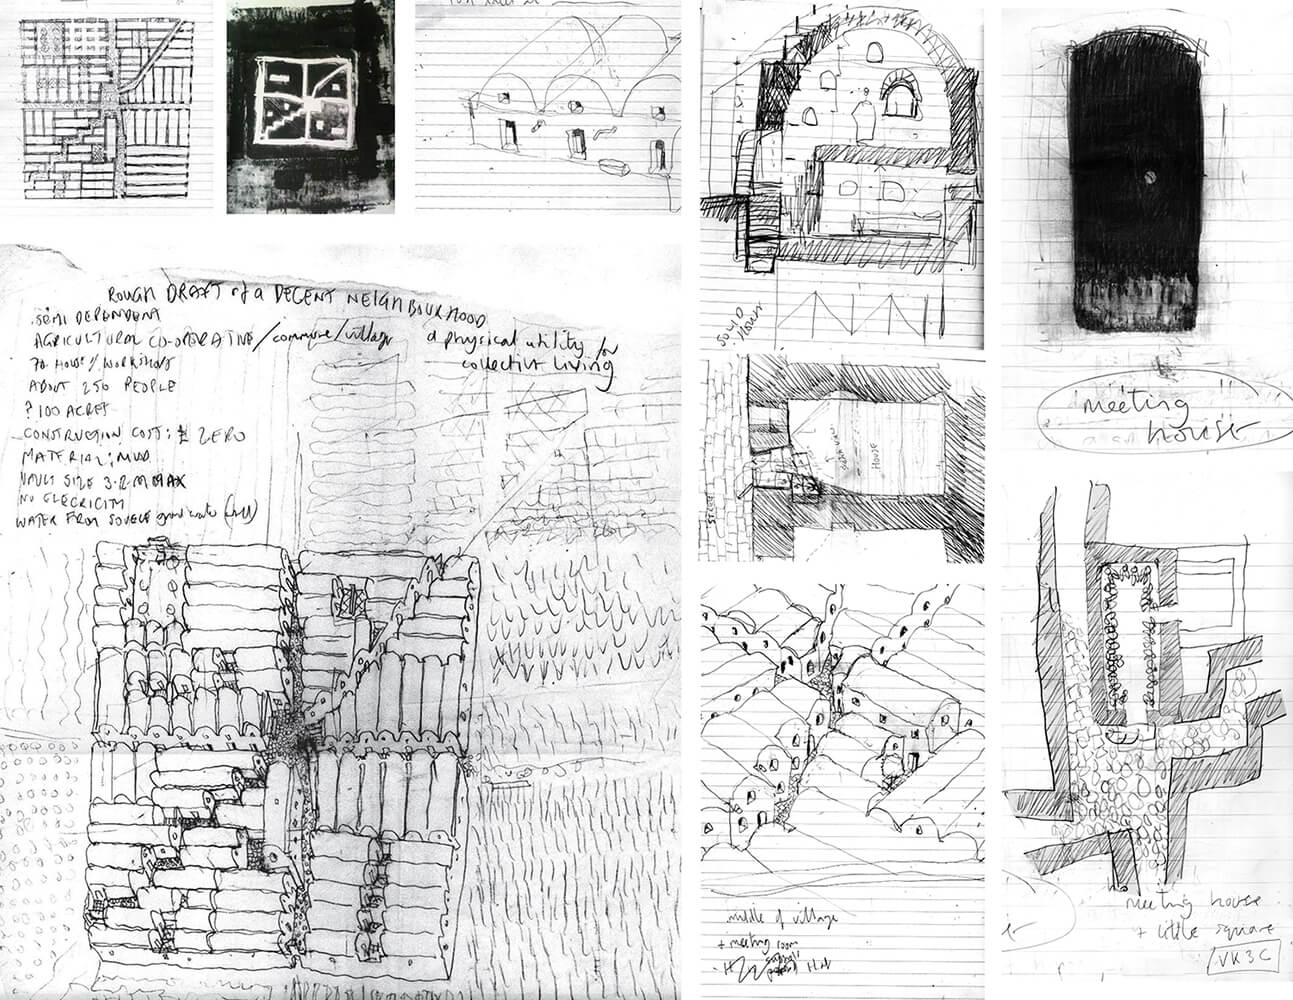 ROUGH DRAFT of a DECENT NEIGHBOURHOOD
SEMI DEPENDENT
AGRICULTURAL CO-OPERATIVE / commune / village
70 HOUSE / WORKSHOPS
ABOUT 250 PEOPLE
? 100 ACRES
CONSTRUCTION COST: £ ZERO
MATERIAL: MUD
VAULT SIZE 3.2 M MAX
NO ELECRICITY
WATER FROM SOURCE ground water (well)
a physical utility for
collective living
SOLID
STREET
HOUSE
middle of village
+ meeting room
meeting
house
meeting house
+ little square
VK3C